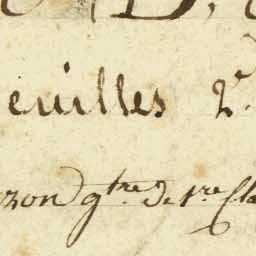 euilles 2e.
zon gtre. De 1re. Cla